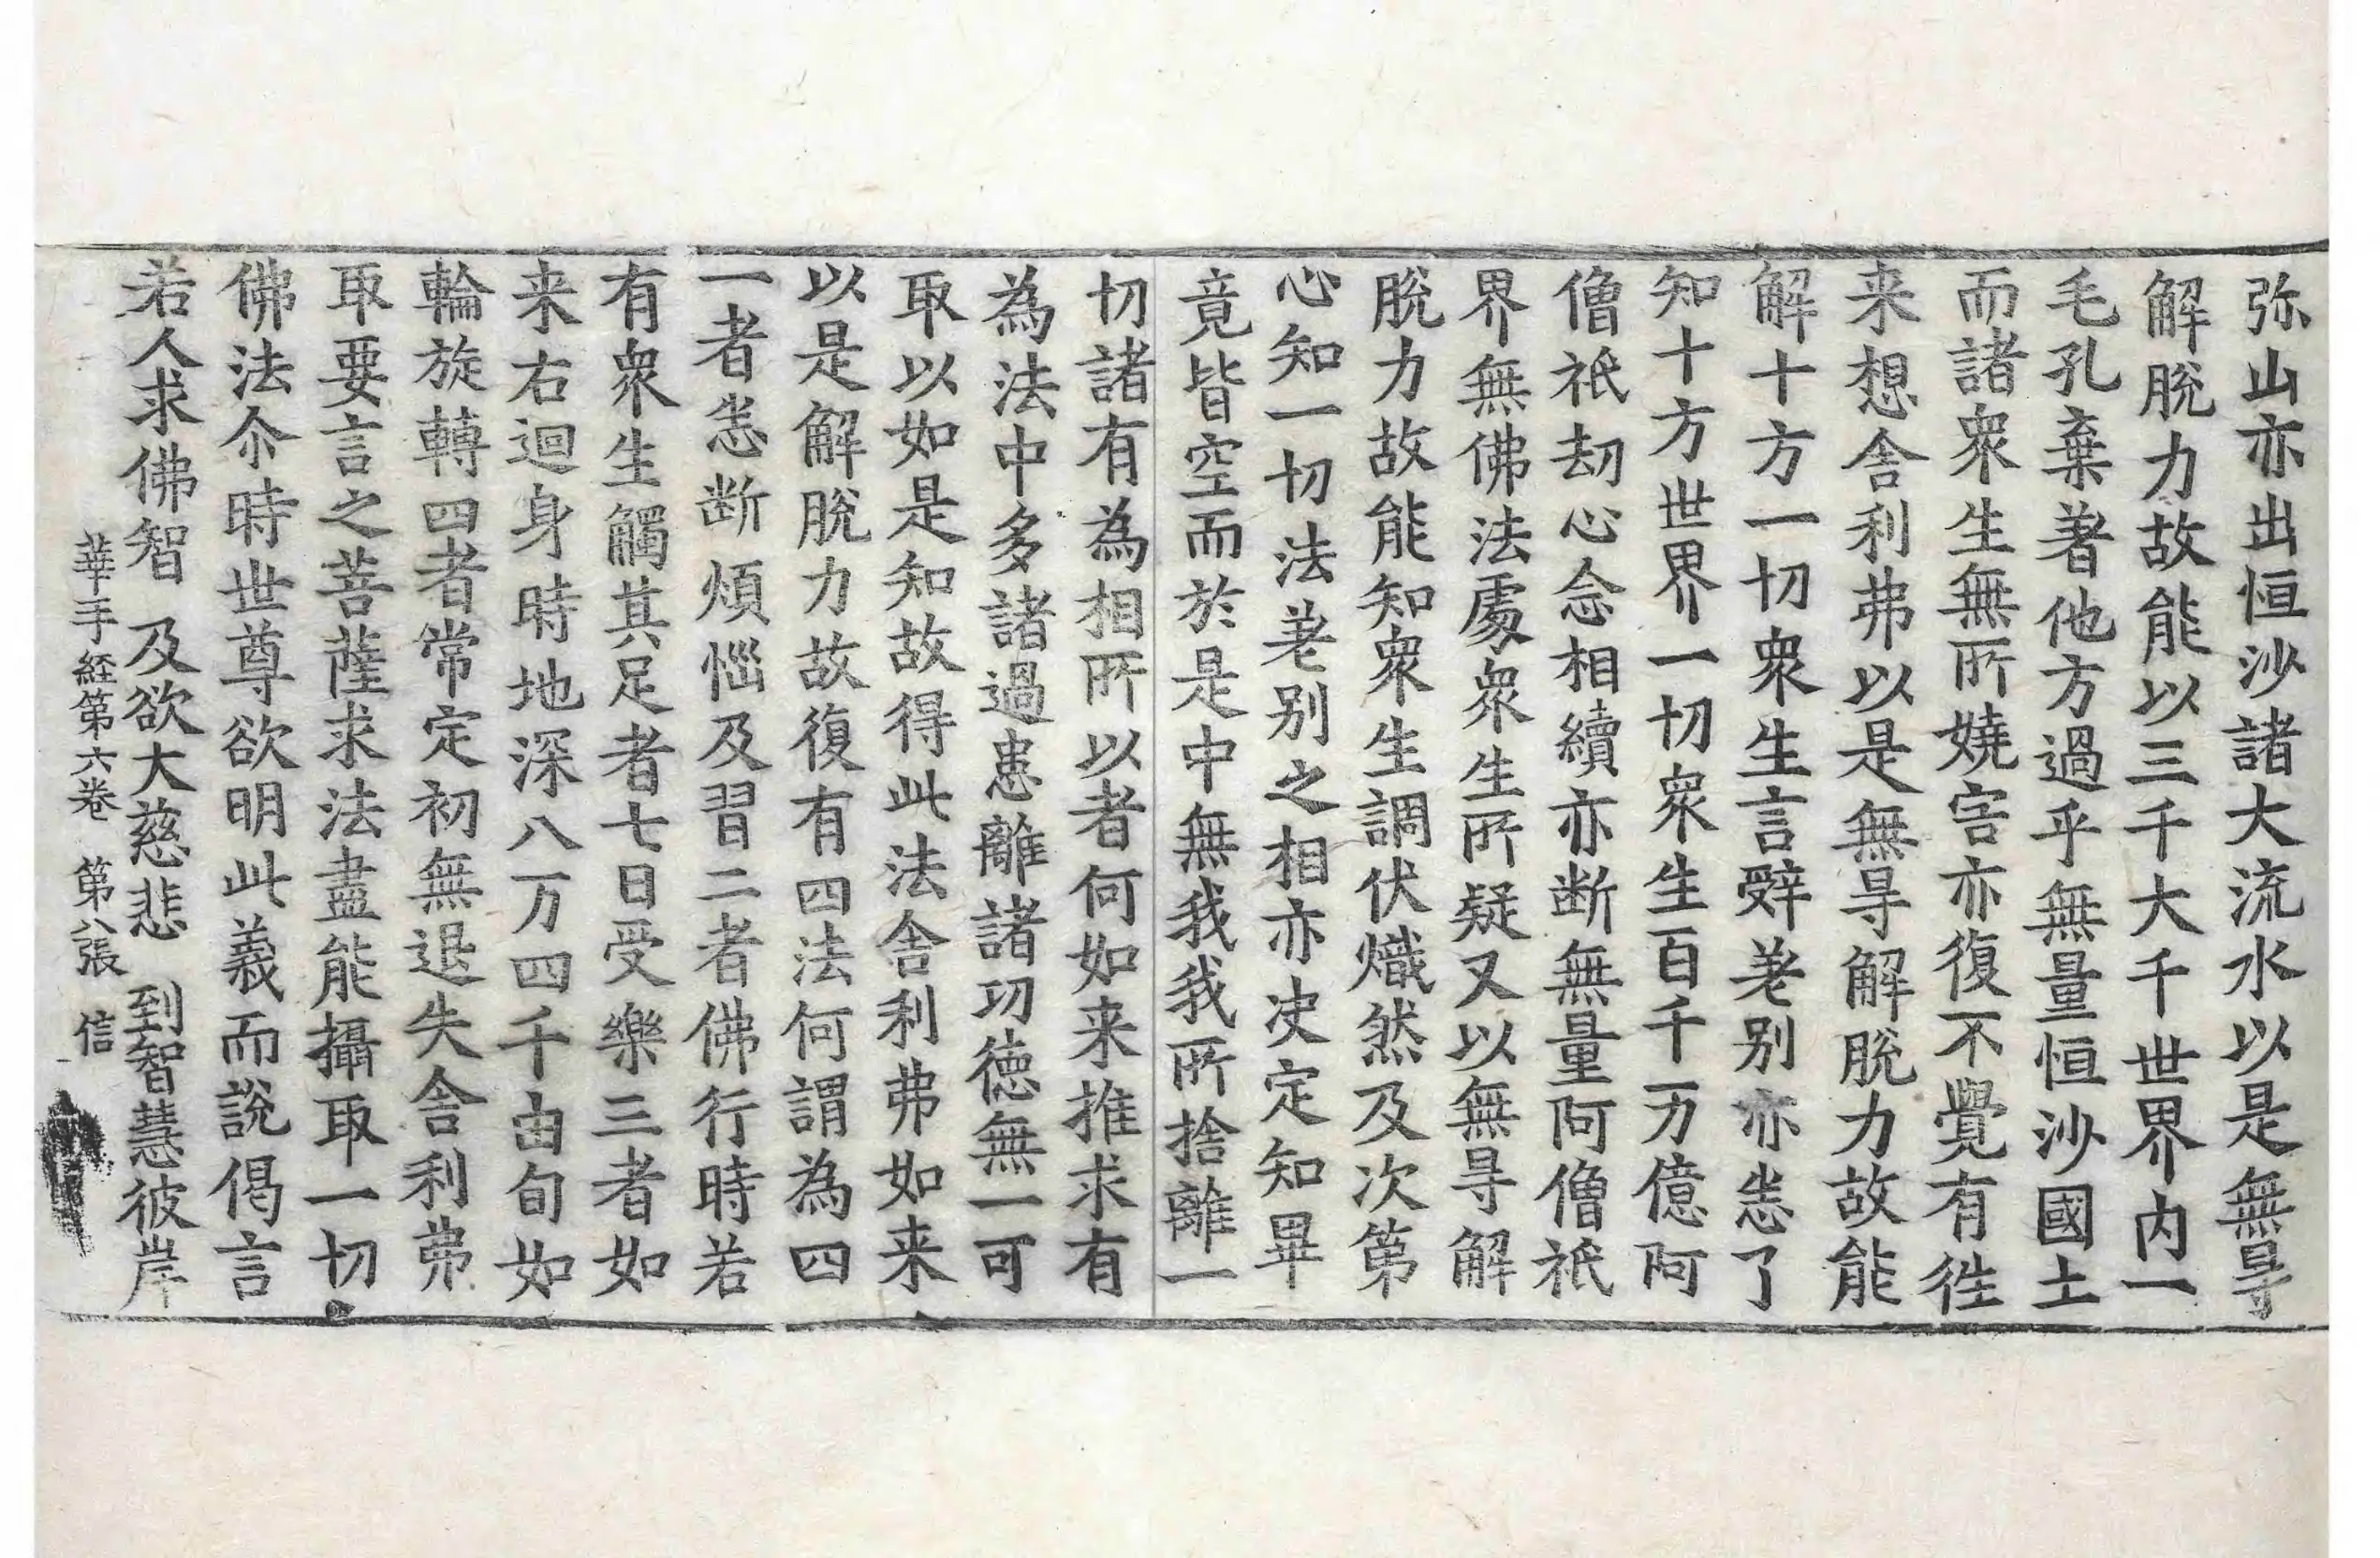 弥山亦出恒沙諸大流水以是無㝵
解脫力故能以三千大千世界內一
毛孔棄著他方過乎無量恒沙國土
而諸衆生無所嬈害亦復不覺有徃
来想舍利弗以是無㝵解脫力故能
解十方一切衆生言辤差別亦悉了
知十方世界一切衆生百千万億阿
僧祇劫心念相續亦断無量阿僧祇
界無佛法處衆生所疑又以無㝵解
脫力故能知衆生調伏熾然及次第
心知一切法差別之相亦决定知畢
竟皆空而於是中無我我所捨離一
切諸有為相所以者何如来推求有
為法中多諸過患離諸功徳無一可
取以如是知故得此法舍利弗如来
以是解脫力故復有四法何謂為四
一者悉断煩惱及習二者佛行時若
有衆生觸其足者七日受樂三者如
来右迴身時地深八万四千由旬如
輪旋轉四者常定初無退失舍利弗
取要言之菩薩求法盡能攝取一切
佛法尒時世尊欲明此義而說偈言
若人求佛智 及欲大慈悲 到智慧彼岸
華手経第六卷 第八張 信